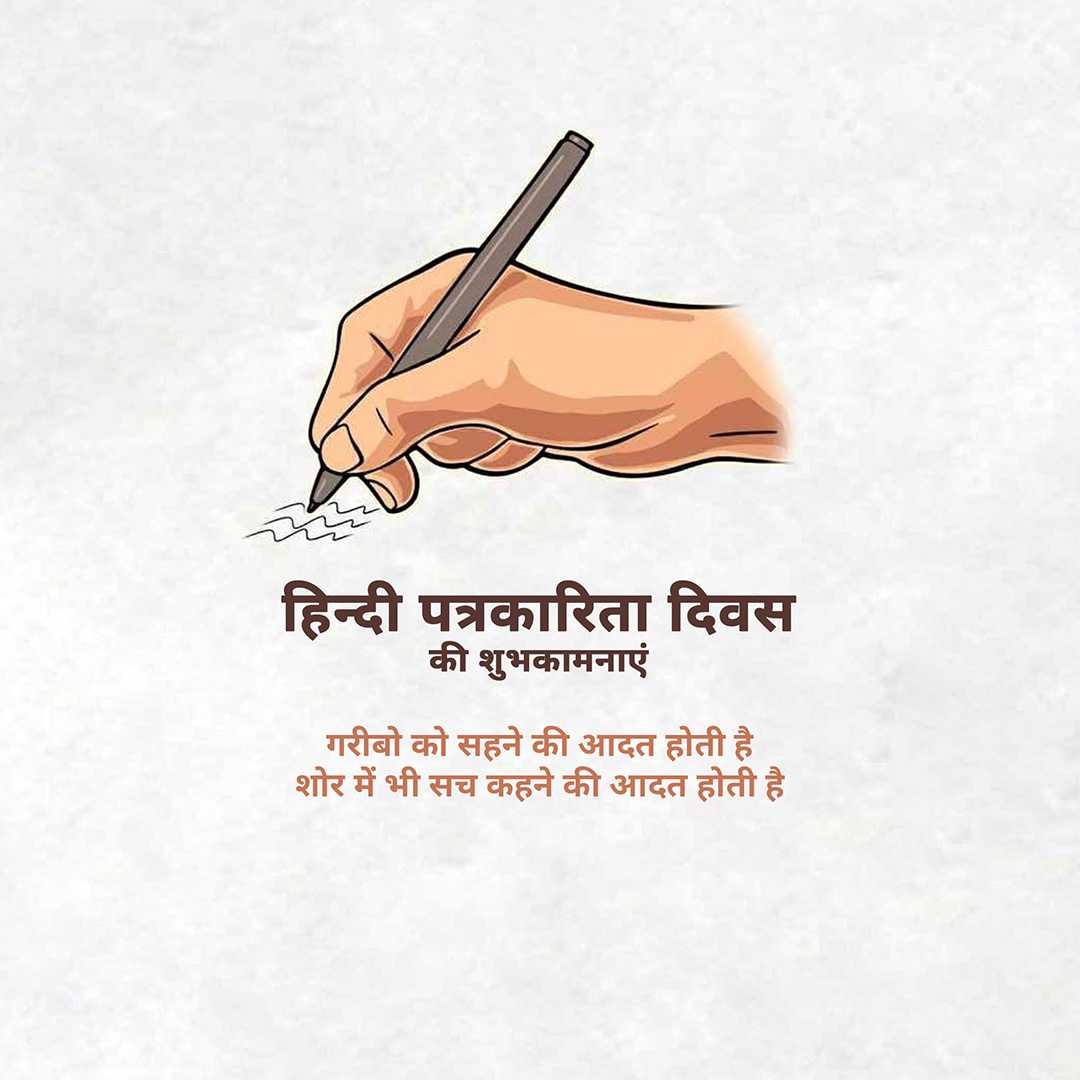 हिन्दी पत्रकारिता दिवस
की शुभकामनाएं
गरीबो को सहने की आदत होती है
शोर में भी सच कहने की आदत होती है